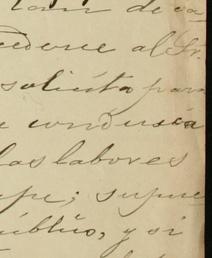 de ca
cederse al Sr.
solicita para
conducia
las labores
pe; supue
público, y si